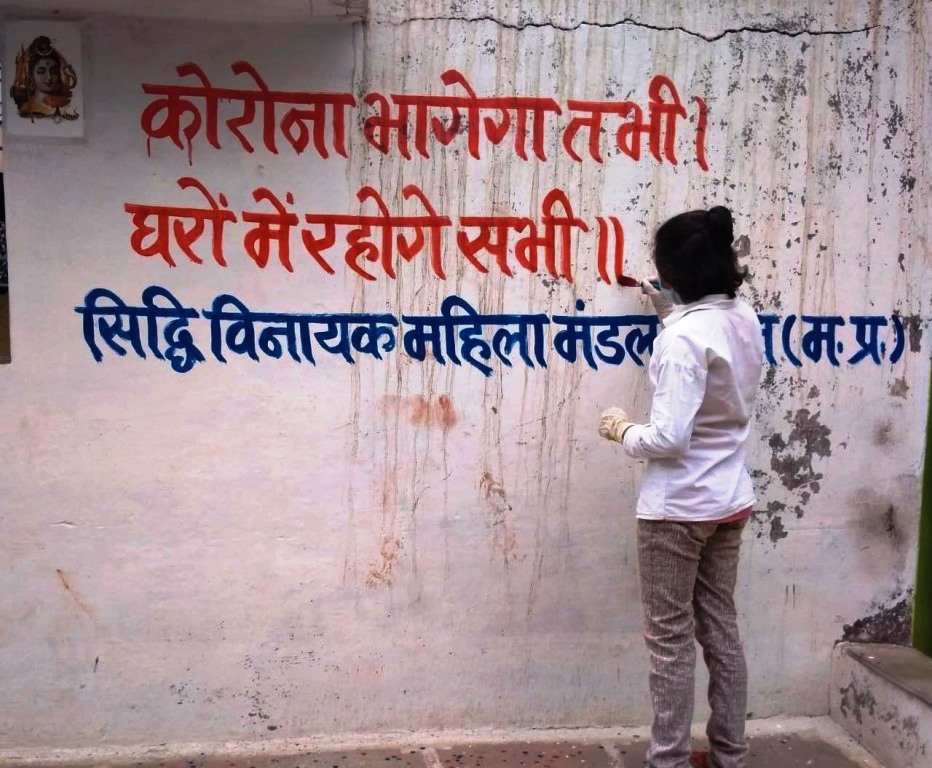 कोरोना भागेगा तभी।
घरों में रहोगे सभी॥
सिद्धि विनायक महिला मंडल (म.प्र.)